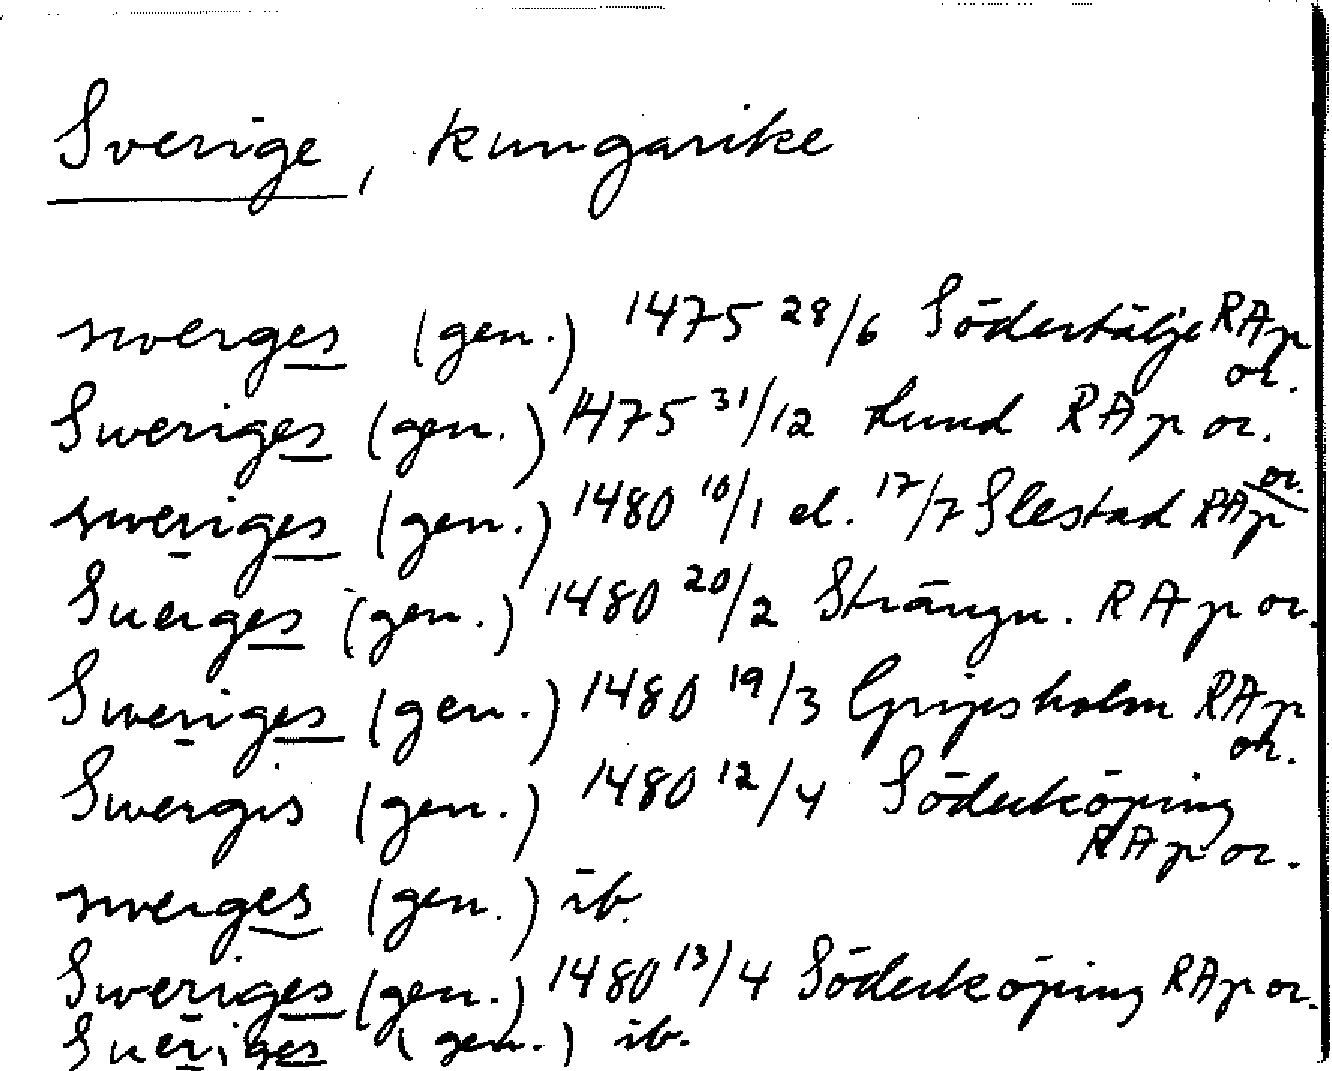 Sverige, kungarike
swerges (gen.) 1475 28/6 Södertälje RAp or.
Sweriges (gen.) 1475 31/12 Lund RAp or.
sweriges (gen.) 1480 10/1 el. 17/7 Slestad RAp or.
Suerges (gen.) 1480 20/2 Strängn. RAp or.
Sweriges (gen.) 1480 19/3 Gripesholm RAp or.
Swergis (gen.) 1480 12/4 Söderköping
RAp or.
swerges (gen.) ib.
Sweriges (gen.) 1480 13/4 Söderköping RAp or.
Sueriges (gen.) ib.